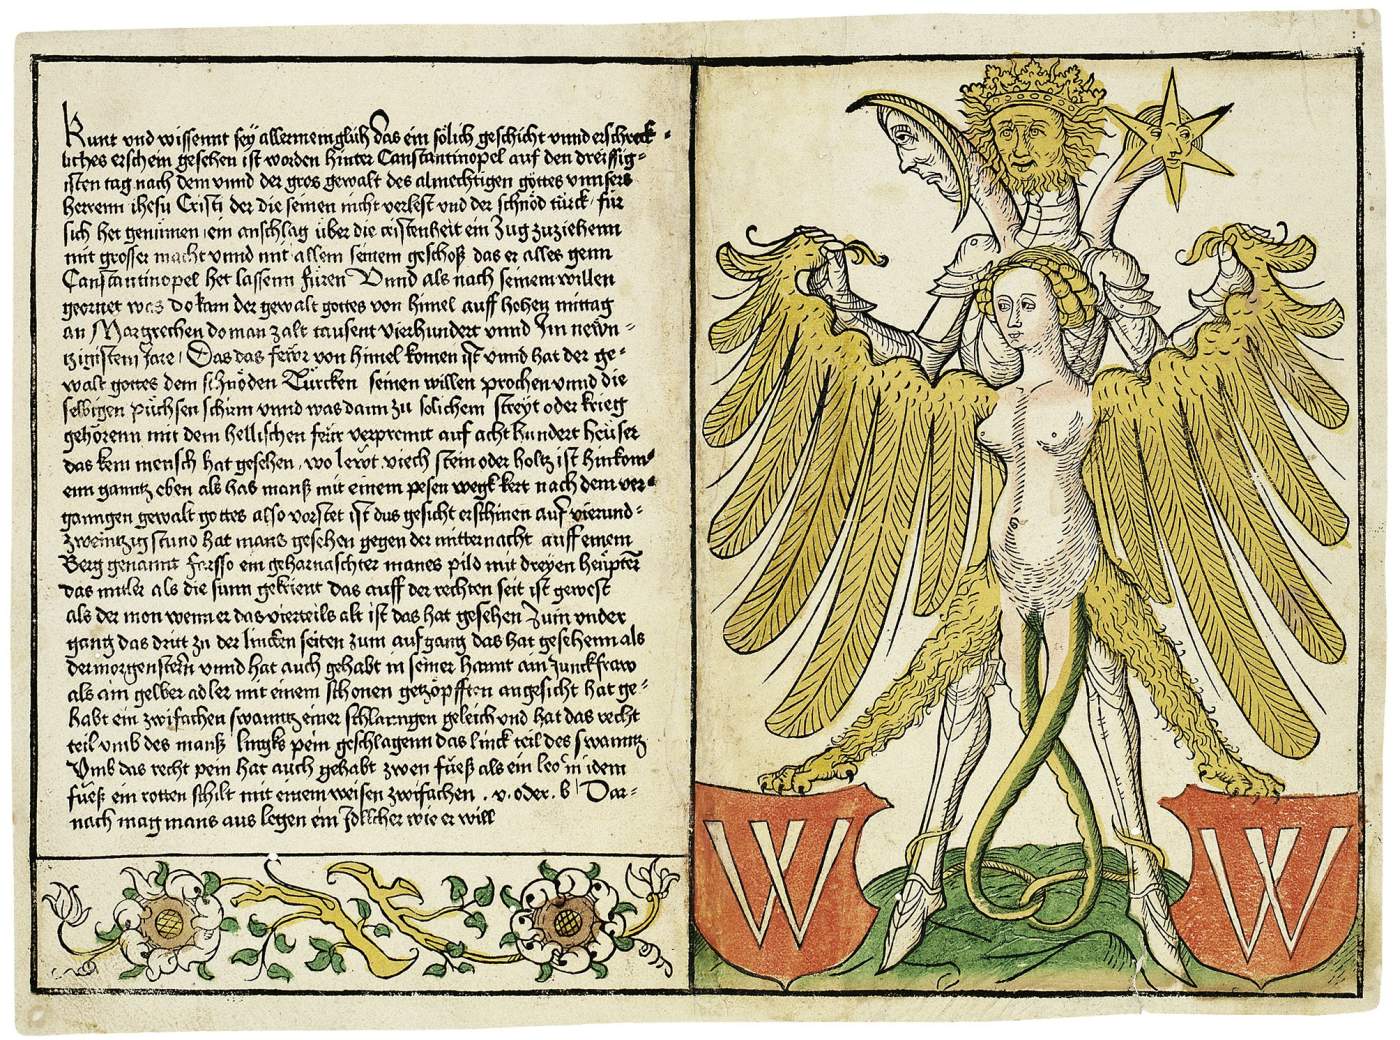 Kunt vnd wissennt sey allermeniglich das ein sölich geschicht vnnd erschreck-
liches erschein gesehen ist worden hinter Constantinopel auf den dreissig-
isten tag nach dem vnnd der gros gewalt des almechtigen gottes vnnsers
herrenn ihesu Cristi der die seinen nicht verlest vnd der schnöd türck für
sich het genümen ein anschlag über die cristenheit ein Zug zuziehenn
mit grosser macht vnnd mit allem seinem geschoß das er alles genn
Constantinopel het lassenn füren Vnnd als nach seinem willen
geornet was do kam der gewalt gottes von himel auff hohen mittag
an Margrethen do man zalt tausent vierhundert vnnd Im newn-
tzigistem Jare / Das das fewr von himel komen ist vnnd hat der ge-
walt gottes dem schnöden Türcken seinen willen prochen vnnd die
selbigen püchsen schirm vnnd was dann zu solichem streyt oder krieg
gehörenn mit dem hellischen feür verprennt auf acht hundert heüser
das kein mensch hat gesehen, wo lewt viech stein oder holtz ist hinkom-
enn ganntz eben als has manß mit einem pesen wegk kert nach dem ver-
ganngen gewalt gottes also vorstet ist das gesicht erschinen auf vierund-
zweintzig stund hat mans gesehen gegen der mitternacht auff einem
Berg genannt farsso ein geharnaschter manes pild mit dreyen heüpter
das mitler als die sunn gekrönt das auff der rechten seit ist gewest
als der mon wenn er das vierteils alt ist das hat gesehen Zum vnder
gang das dritt zu der lincken seiten zum aufgang das hat gesehenn als
der morgenstern vnnd hat auch gehabt in seiner hannt ain Junckfraw
als ain gelber adler mit einem schonen getzöpfften angesicht hat ge-
habt ein zwifachen swanntz einer schlanngen geleich vnd hat das recht
teil vmb des manß lingks pein geschlagenn das linck teil des swanntz
Vmb das recht pein hat auch gehabt zwen füeß als ein leo in idem
füeß ein rotten schilt mit einem weisen zwifachen . v. oder . b Dar-
nach mag mans aus legen ein Idlicher wie er will
W W